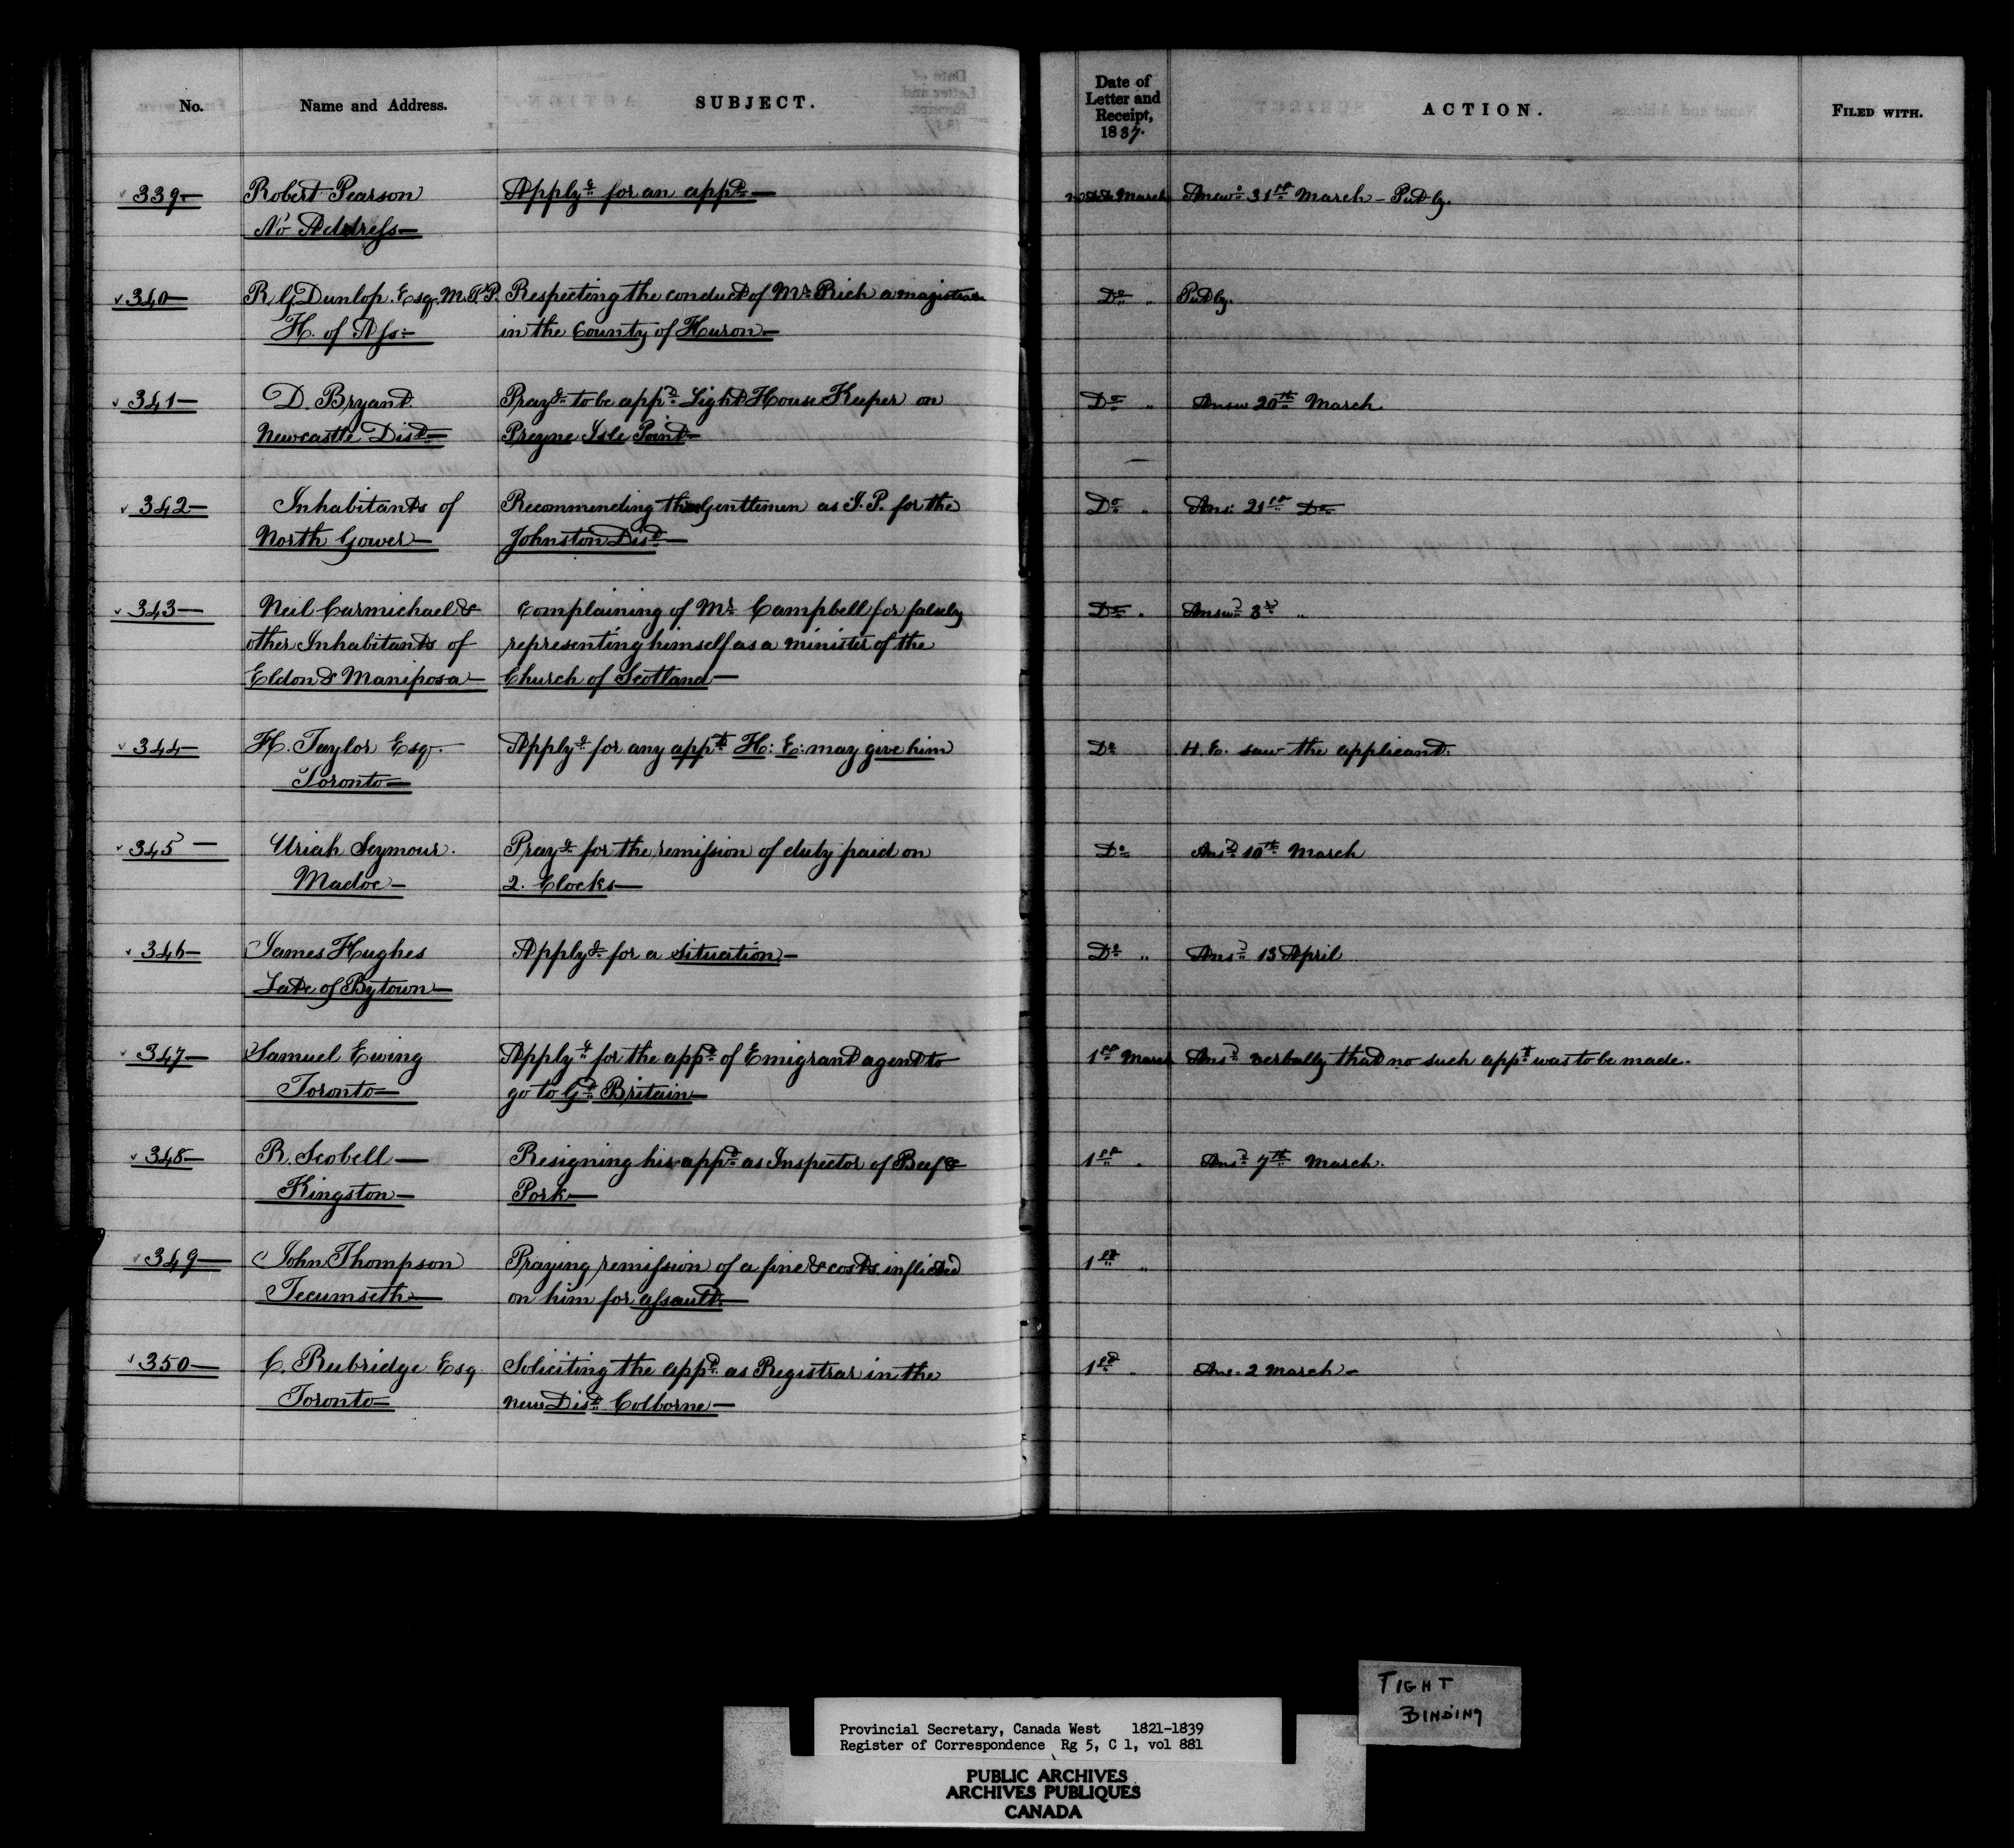 No.
Name and Address.
SUBJECT.
Date of
Letter and
Receipt,
1837.
ACTION.
FILED WITH.
339—
Robert Pearson
No Address—
Applyg for an appt—
March
Answd 31st March – Put by.
340—
R. G. Dunlop. Esq. M.P.P.
H. of Ass—
Respecting the conduct of Mr Rich a magistrate
in the County of Huron—
Do "
Put by.
341—
D. Bryant.
Newcastle Dist—
Prayg to be appd Light House Keeper on
Presqne Isle Point—
Do "
Answ 20th March.
342—
Inhabitants of
North Gower—
Recommending Gentlemen as J. P. for the
Johnston Dist—
Do "
Ans: 21st Do
343—
Neil Carmichael &
other Inhabitants of
Eldon & Mariposa—
Complaining of Mr Campbell for falsely
representing himself as a minister of the
Church of Scotland—
Do "
Answd 3d "
344—
H. Taylor Esq.
Toronto—
Applyg for any appt H: E: may give him
Do
H. E. saw the applicant.
345—
Uriah Seymour.
Madoc—
Prayg for the remission of duty paid on
2. Clocks—
Do
Ansd 10th March
346—
James Hughes
Late of Bytown—
Applyg for a situation—
Do "
Ansd 13 April
347—
Samuel Ewing
Toronto—
Applyg for the appt of Emigrant agent to
go to Gt Britain—
1st March
Ansd verbally that no such appt was to be made.
348—
R. Scobell—
Kingston—
Resigning his appt as Inspector of Beef &
Pork—
1st "
Ansd 7th March.
349—
John Thompson
Tecumseth—
Praying remission of a fine & costs inflicted
on him for assault.—
1st "
350—
C. Rubridge Esq.
Toronto—
Soliciting the appt as Registrar in the
new Dist Colborne—
1st "
Ans. 2 March—
TIGHT
BINDING
Provincial Secretary, Canada West 1821-1839
Register of Correspondence Rg 5, C 1, vol 881
PUBLIC ARCHIVES
ARCHIVES PUBLIQUES
CANADA